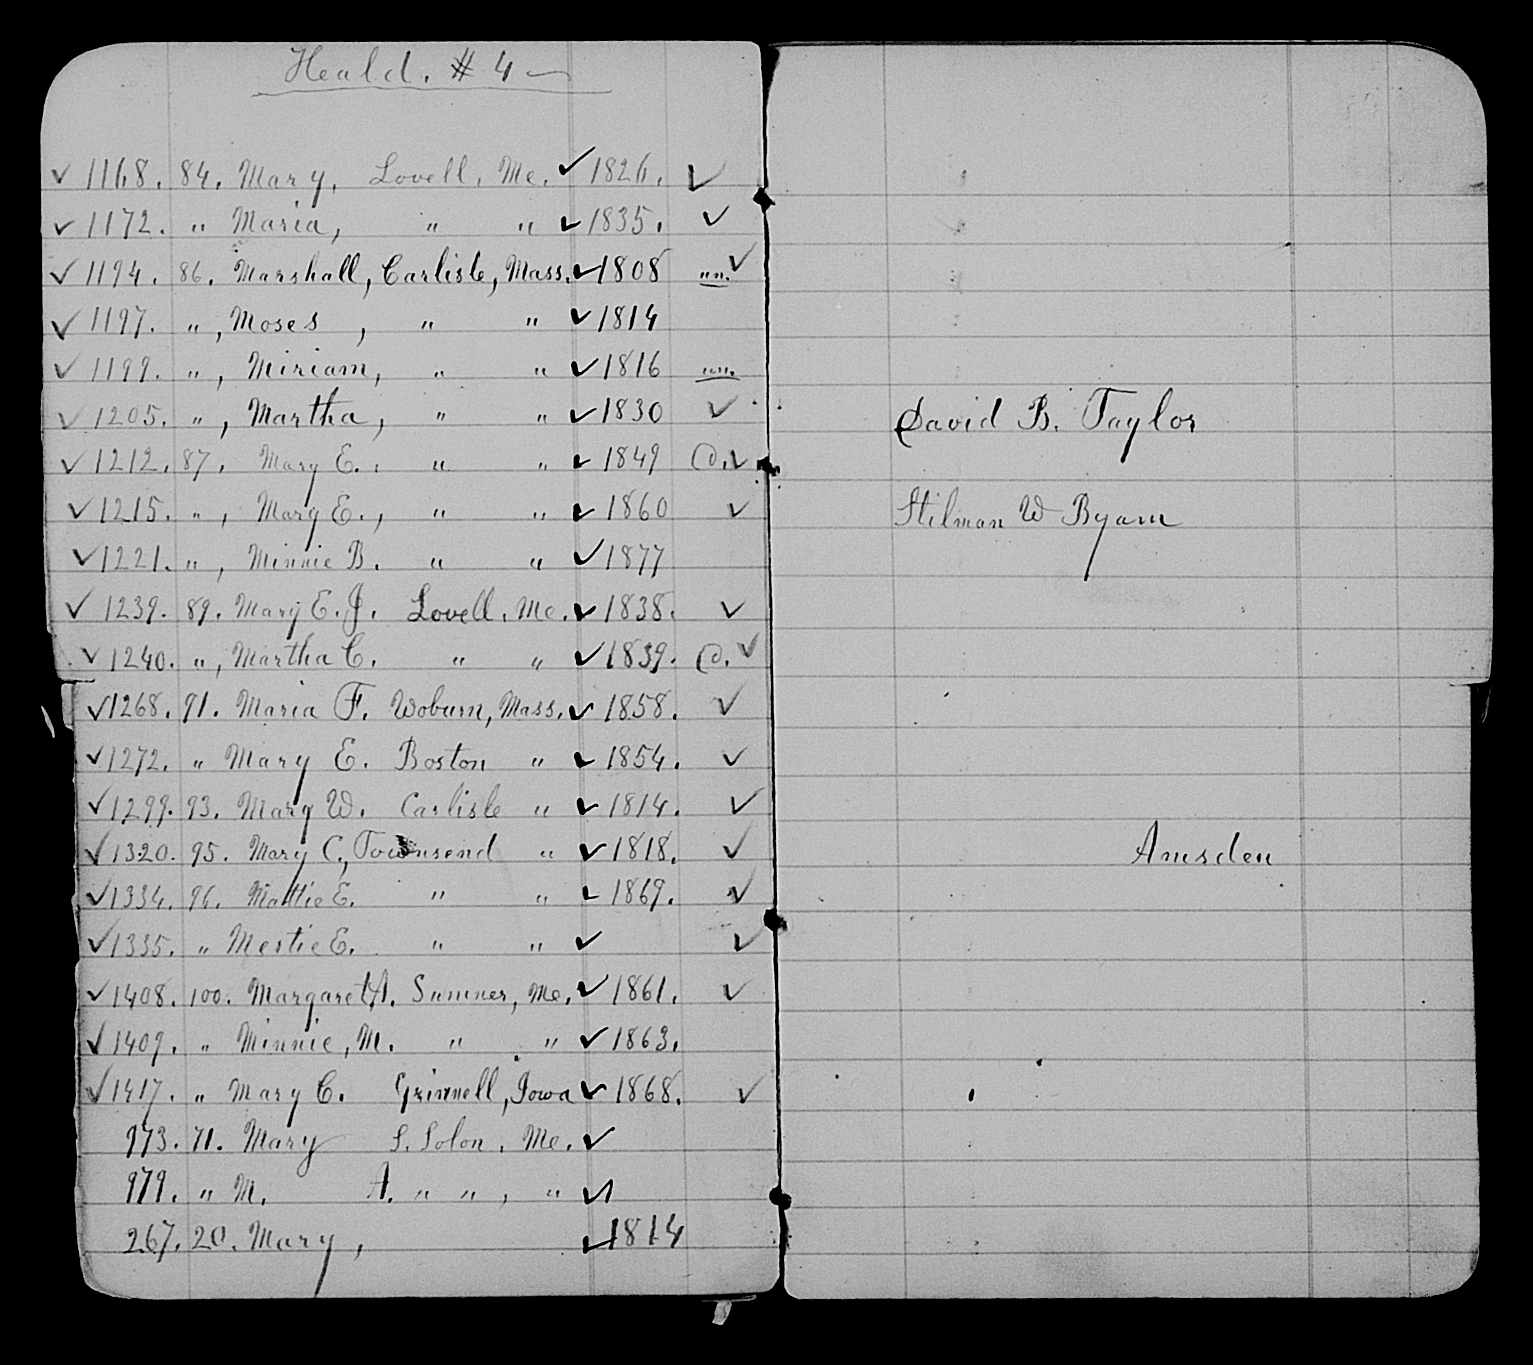 Heald. # 4
✓ 1168. 84. Mary, Lovell, Me. ✓ 1826. ✓
✓ 1172. " Maria, " " ✓ 1835. ✓
✓ 1194. 86. Marshall, Carlisle, Mass. ✓ 1808 un. ✓
✓ 1197. ", Moses , " " ✓ 1814
✓ 1199. ", Miriam, " " ✓ 1816 un.
✓ 1205. ", Martha, " " ✓ 1830 ✓
✓ 1212. 87. Mary E. " " ✓ 1849 @. ✓
✓ 1215. ", Mary E., " " ✓ 1860 ✓
✓ 1221. ", Minnie B. " " ✓ 1877
✓ 1239. 89. Mary E. J. Lovell, Me. ✓ 1838. ✓
✓ 1240. ", Martha C. " " ✓ 1839. @. ✓
✓ 1268. 91. Maria F. Woburn, Mass. ✓ 1858. ✓
✓ 1272. " Mary E. Boston " ✓ 1854. ✓
✓ 1299. 93. Mary W. Carlisle " ✓ 1814. ✓
✓ 1320. 95. Mary C., Townsend " ✓ 1818. ✓
✓ 1334. 96. Mattie E. " " ✓ 1869. ✓
✓ 1335. " Mertie E. " " ✓ ✓
✓ 1408. 100. Margaret A. Sumner, Me. ✓ 1861. ✓
✓ 1409. " Minnie, M. " " ✓ 1863.
✓ 1417. " Mary C. Grinnell, Iowa ✓ 1868. ✓
973. 71. Mary S. Solon, Me. ✓
979. " M. A. " ", " ✓
267. 20. Mary, ✓ 1814
David B. Taylor
Stilman W Byam
Amsden